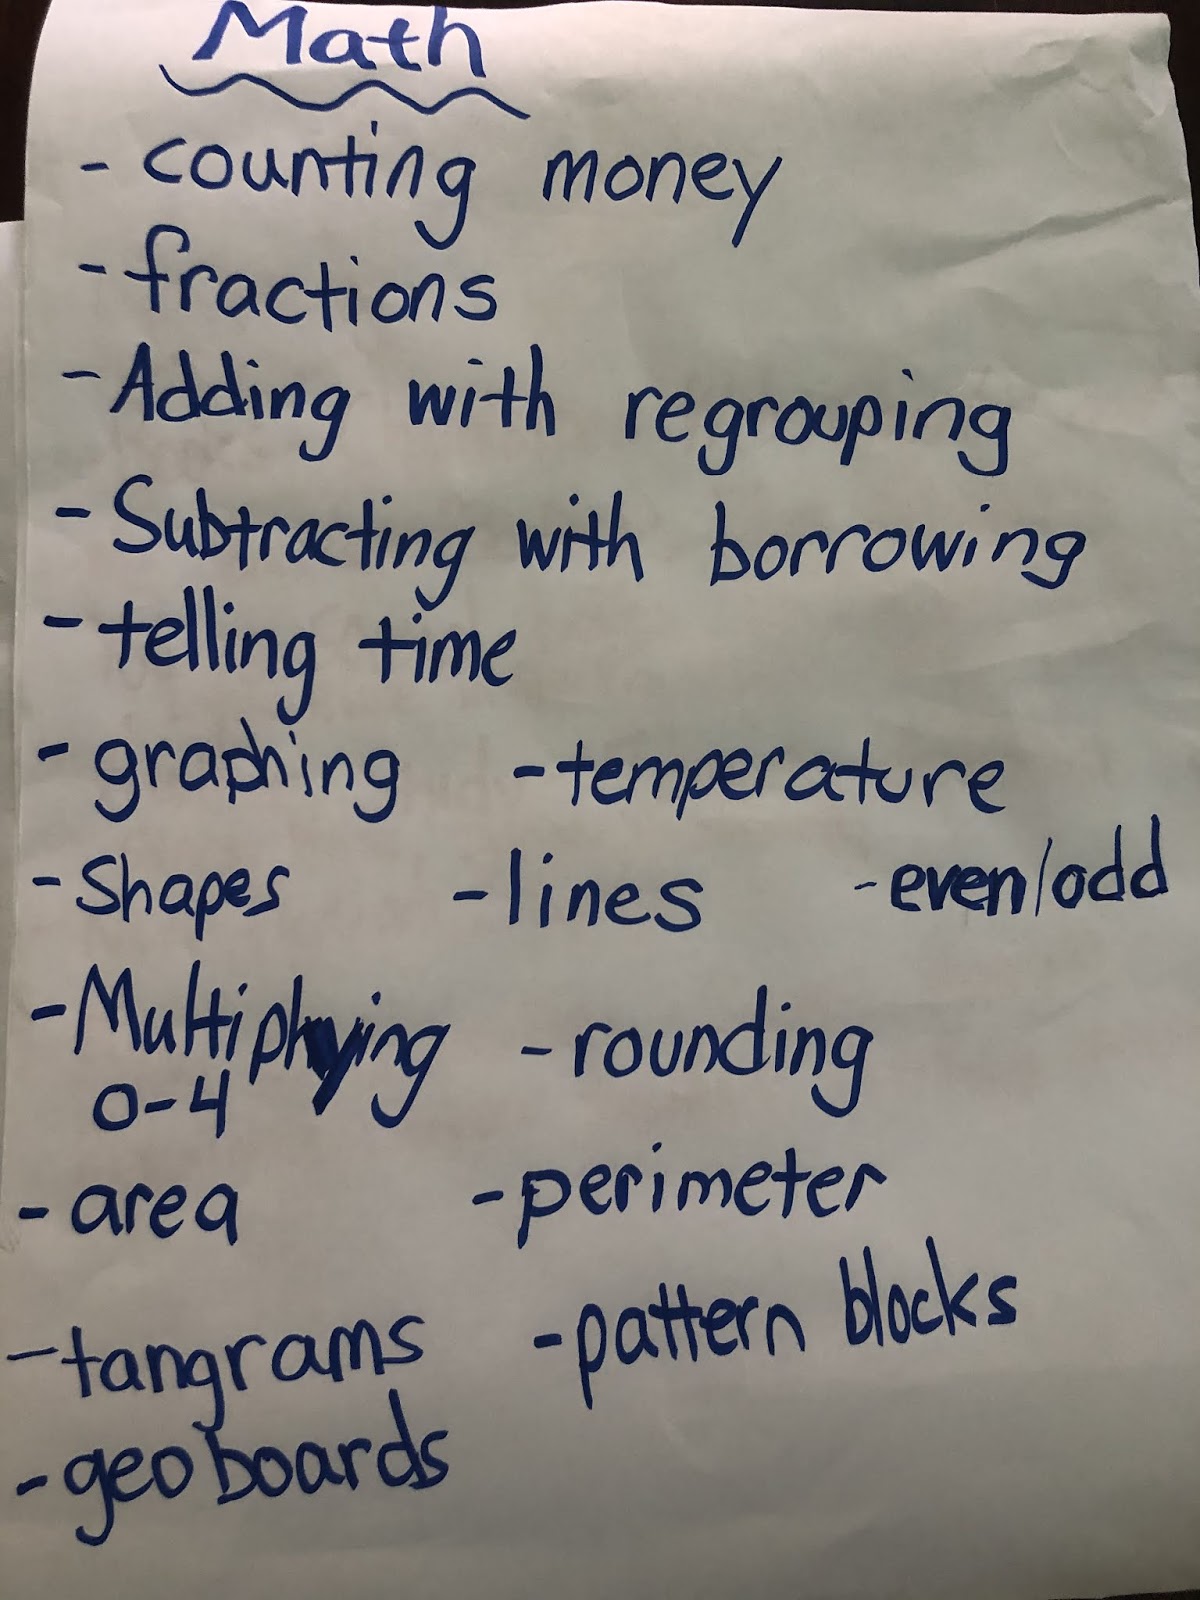 Math
- counting money
- fractions
- Adding with regrouping
- Subtracting with borrowing
- telling time
- graphing - temperature
- Shapes - lines - even/odd
- Multiplying - rounding
0-4
- area - perimeter
- tangrams - pattern blocks
- geoboards